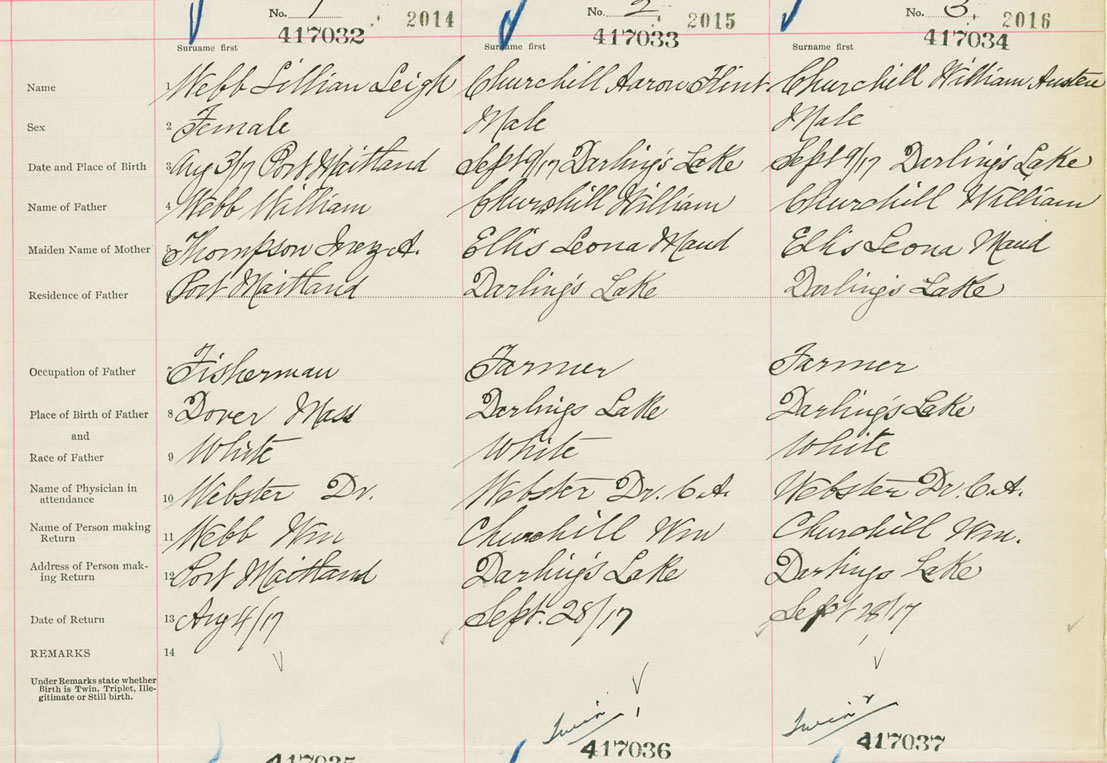 No. 1 2014 No. 2 2015 No. 3 2016
417032 417033 417034
Surname first Surname first Surname first
Name 1 Webb Lillian Leigh Churchill Aaron Flint Churchill William Austen
Sex 2 Female Male Male
Date and Place of Birth 3 Aug 3/17 Port Maitland Sept 9/17 Darling's Lake Sept 9/17 Darling's Lake
Name of Father 4 Webb William Churchill William Churchill William
Maiden Name of Mother 5 Thompson Inez A. Ellis Leona Maud Ellis Leona Maud
Residence of Father Port Maitland Darling's Lake Darling's Lake
Occupation of Father Fisherman Farmer Farmer
Place of Birth of Father 8 Dover Mass Darlings Lake Darling's Lake
and
Race of Father 9 White White White
Name of Physician in
attendance 10 Webster Dr. Webster Dr. C.A. Webster Dr. C.A.
Name of Person making
Return 11 Webb Wm Churchill Wm Churchill Wm.
Address of Person mak-
ing Return 12 Port Maitland Darling's Lake Darlings Lake
Date of Return 13 Aug 4/17 Sept. 28/17 Sept 28/17
REMARKS 14
Under Remarks state whether
Birth is Twin, Triplet, Ille-
gitimate or Still-birth.
Twin 1 Twin 2
417035 417036 417037